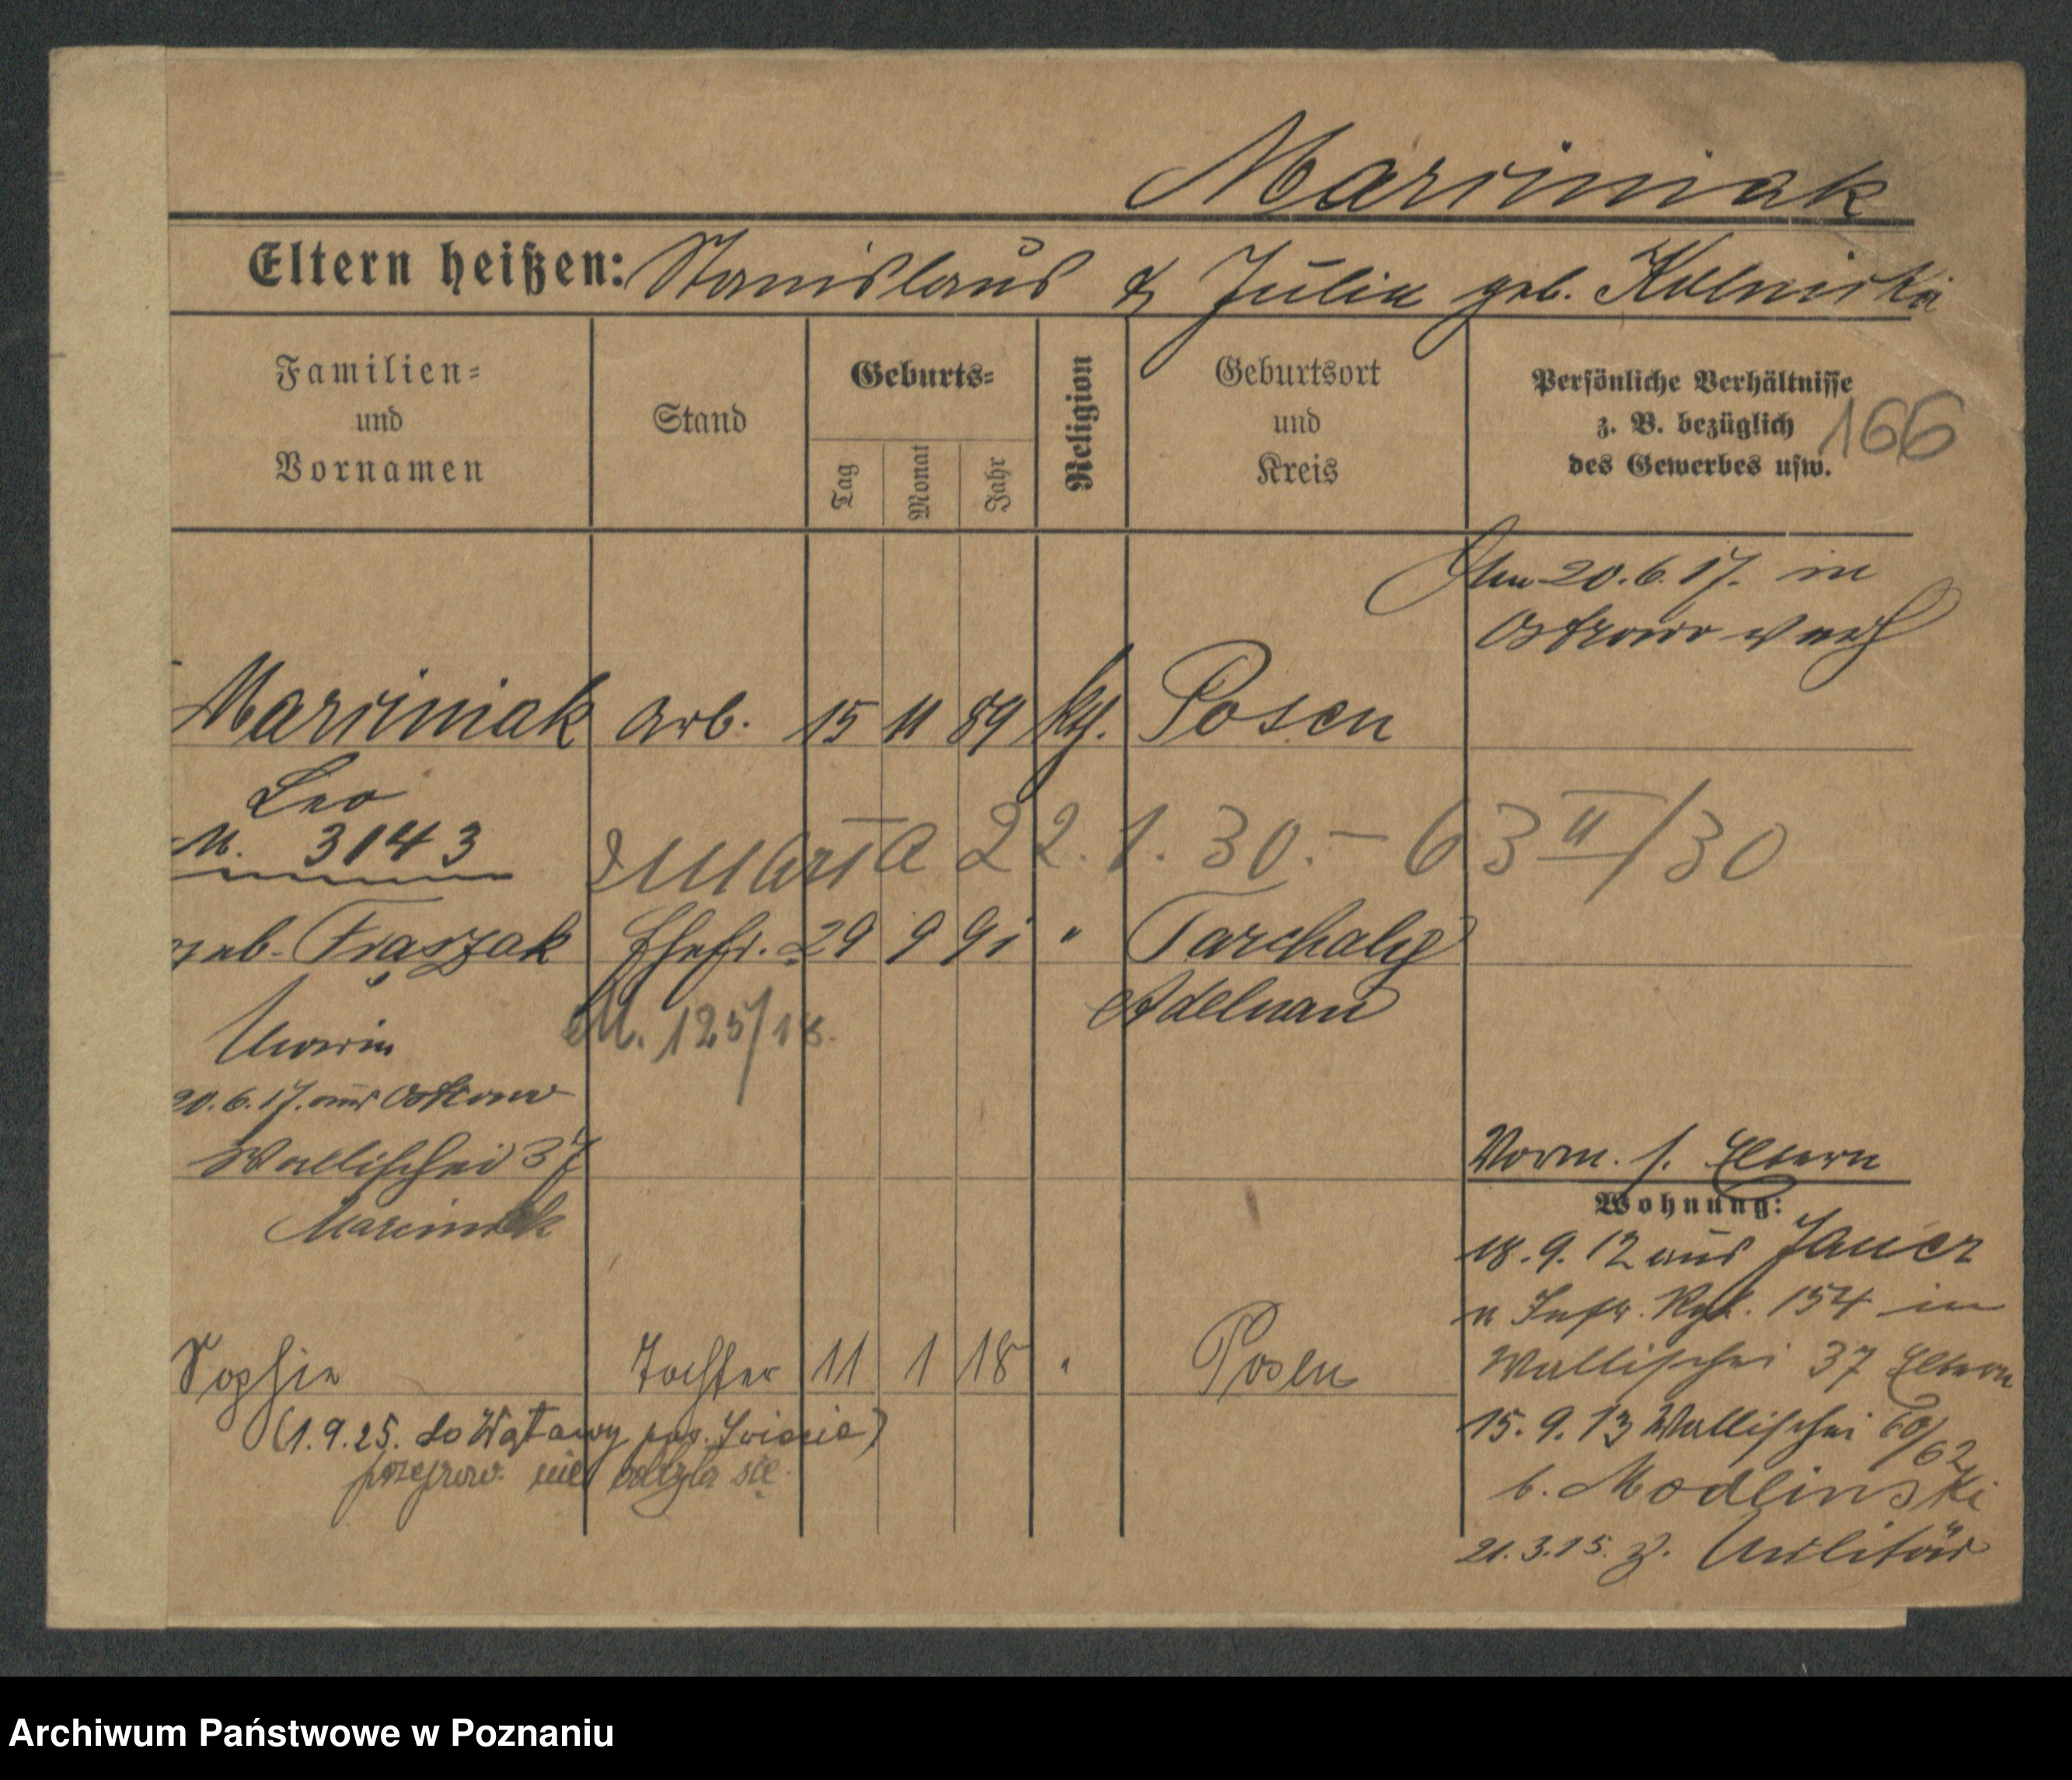 Marciniak
Eltern heißen: Stanislaus & Julia geb. Kolniska
Familien=
und
Vornamen
Stand
Geburts=
Tag
Monat
Jahr
Religion
Geburtsort
und
Kreis
Persönliche Verhältnisse
z. B. bezüglich
des Gewerbes usw.
166
Am 20.6.17. in
Ostrowo verh
Marciniak Arb. 15 11 89 kth. Posen
Leo
M. 3143
Maria 22.1.30. – 63 II/30
geb. Fraszak Ehefr. 29 9 91 " Tarchaly
Adelnau
Maria
M. 125/18.
20.6.17. aus Ostrowo
Wallischei 37
Marciniak
Vorm. s. Eltern
Wohnung:
18.9.12 aus Jauer
v. Inftr. Rgt. 154 in
Wallischei 37 Eltern
Sophie Tochter 11 1 18 " Posen
(1.9.25. do Wątawy pow. )
nie odbyła się.
15.9.13 Wallischei 60/62
b. Modlinski
21.3.15. z. Militär
Archiwum Państwowe w Poznaniu